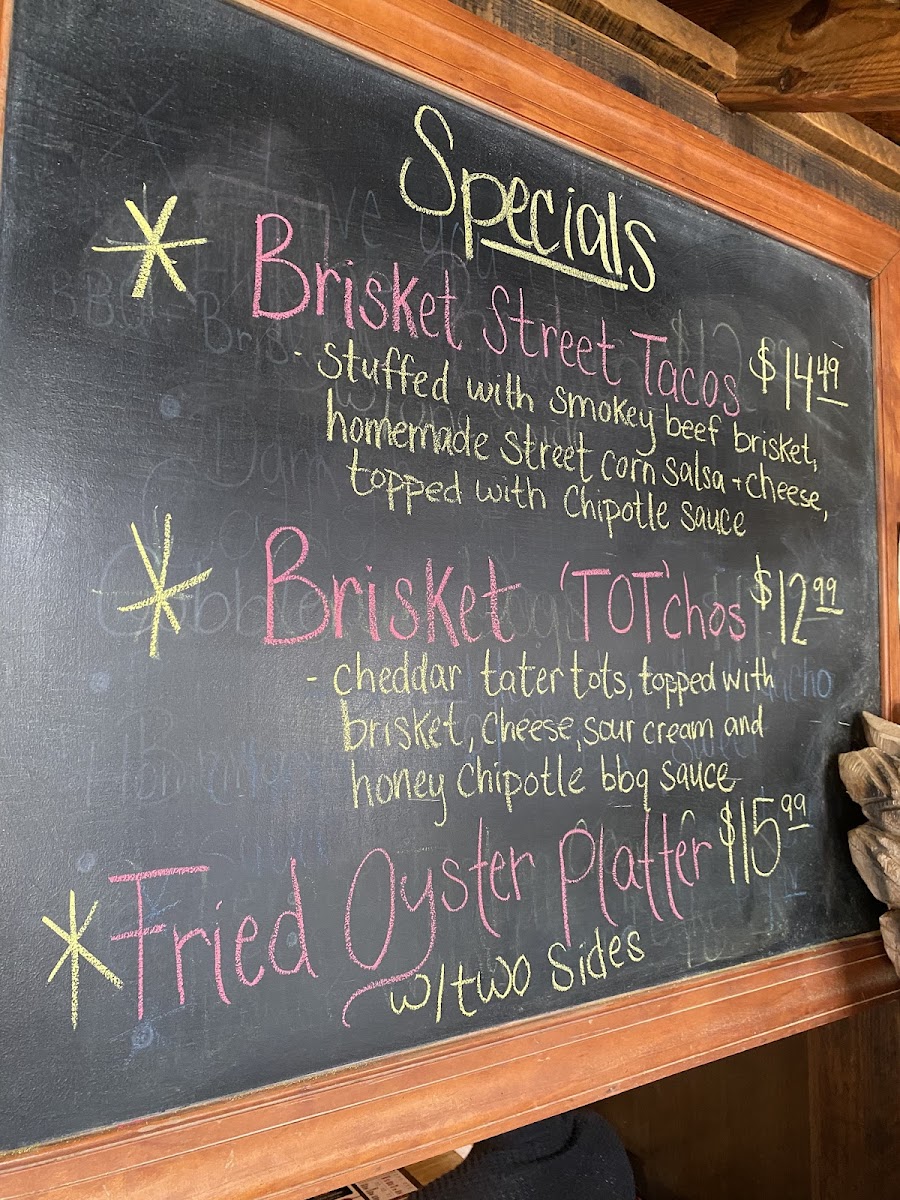 Specials
* Brisket Street Tacos $14.49
- stuffed with smokey beef brisket,
homemade street corn salsa + cheese,
topped with Chipotle sauce
* Brisket 'TOT'chos $12.99
- cheddar tater tots, topped with
brisket, cheese, sour cream and
honey chipotle bbq sauce
* Fried Oyster Platter $15.99
w/ two sides